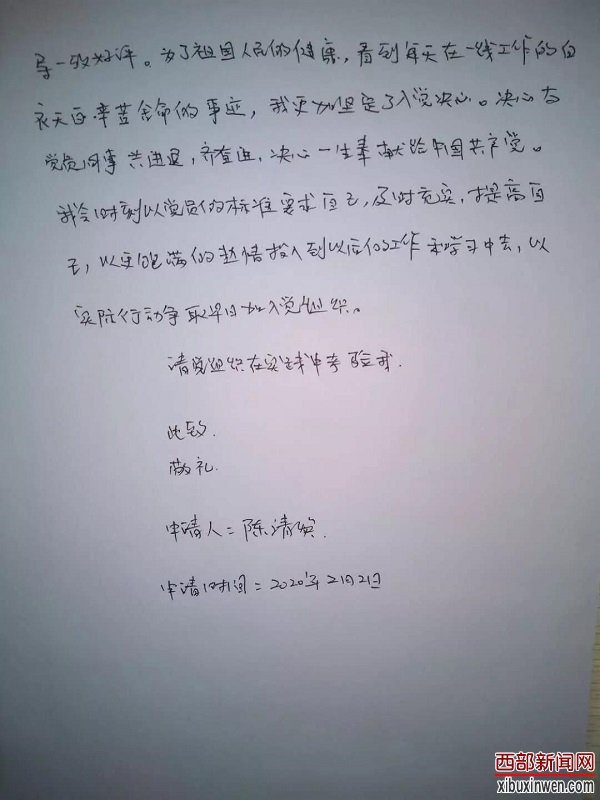 导一致好评。为了祖国人民的健康，看到每天在一线工作的白
衣天使辛苦舍命的事迹，我更加坚定了入党决心。决心与
党员同事共进退，齐奋进，决心一生奉献给中国共产党。
我会时刻以党员的标准要求自己，及时充实，提高自
己，以更饱满的热情投入到以后的工作和学习中去，以
实际行动争取早日加入党组织。
请党组织在实践中考验我.
此致.
敬礼.
申请人：陈靖
申请时间：2020年2月21日
西部新闻网
xibuxinwen.com